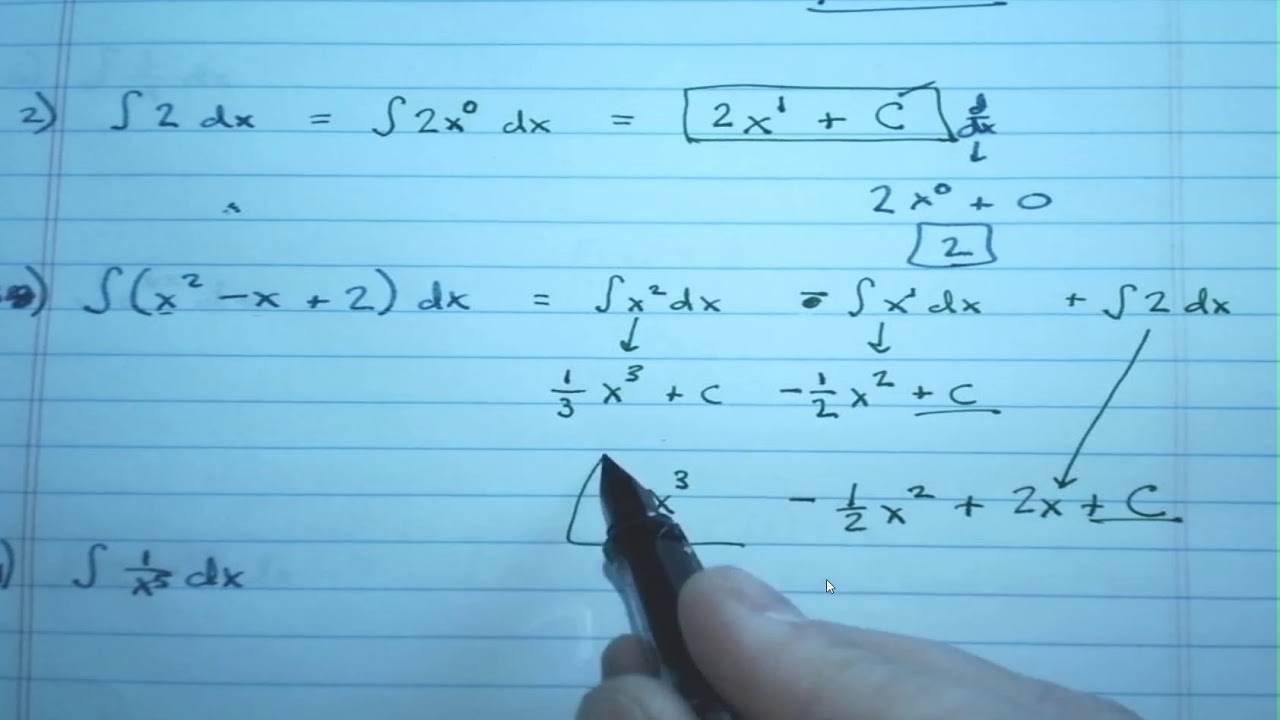 2) ∫ 2 dx = ∫ 2x⁰ dx = 2x¹ + C d/dx
↓
2x⁰ + 0
2
) ∫(x² - x + 2) dx = ∫x² dx - ∫x¹ dx + ∫2 dx
↓ ↓
1/3 x³ + C - 1/2 x² + C
x³ - 1/2 x² + 2x + C
) ∫ 1/x⁵ dx